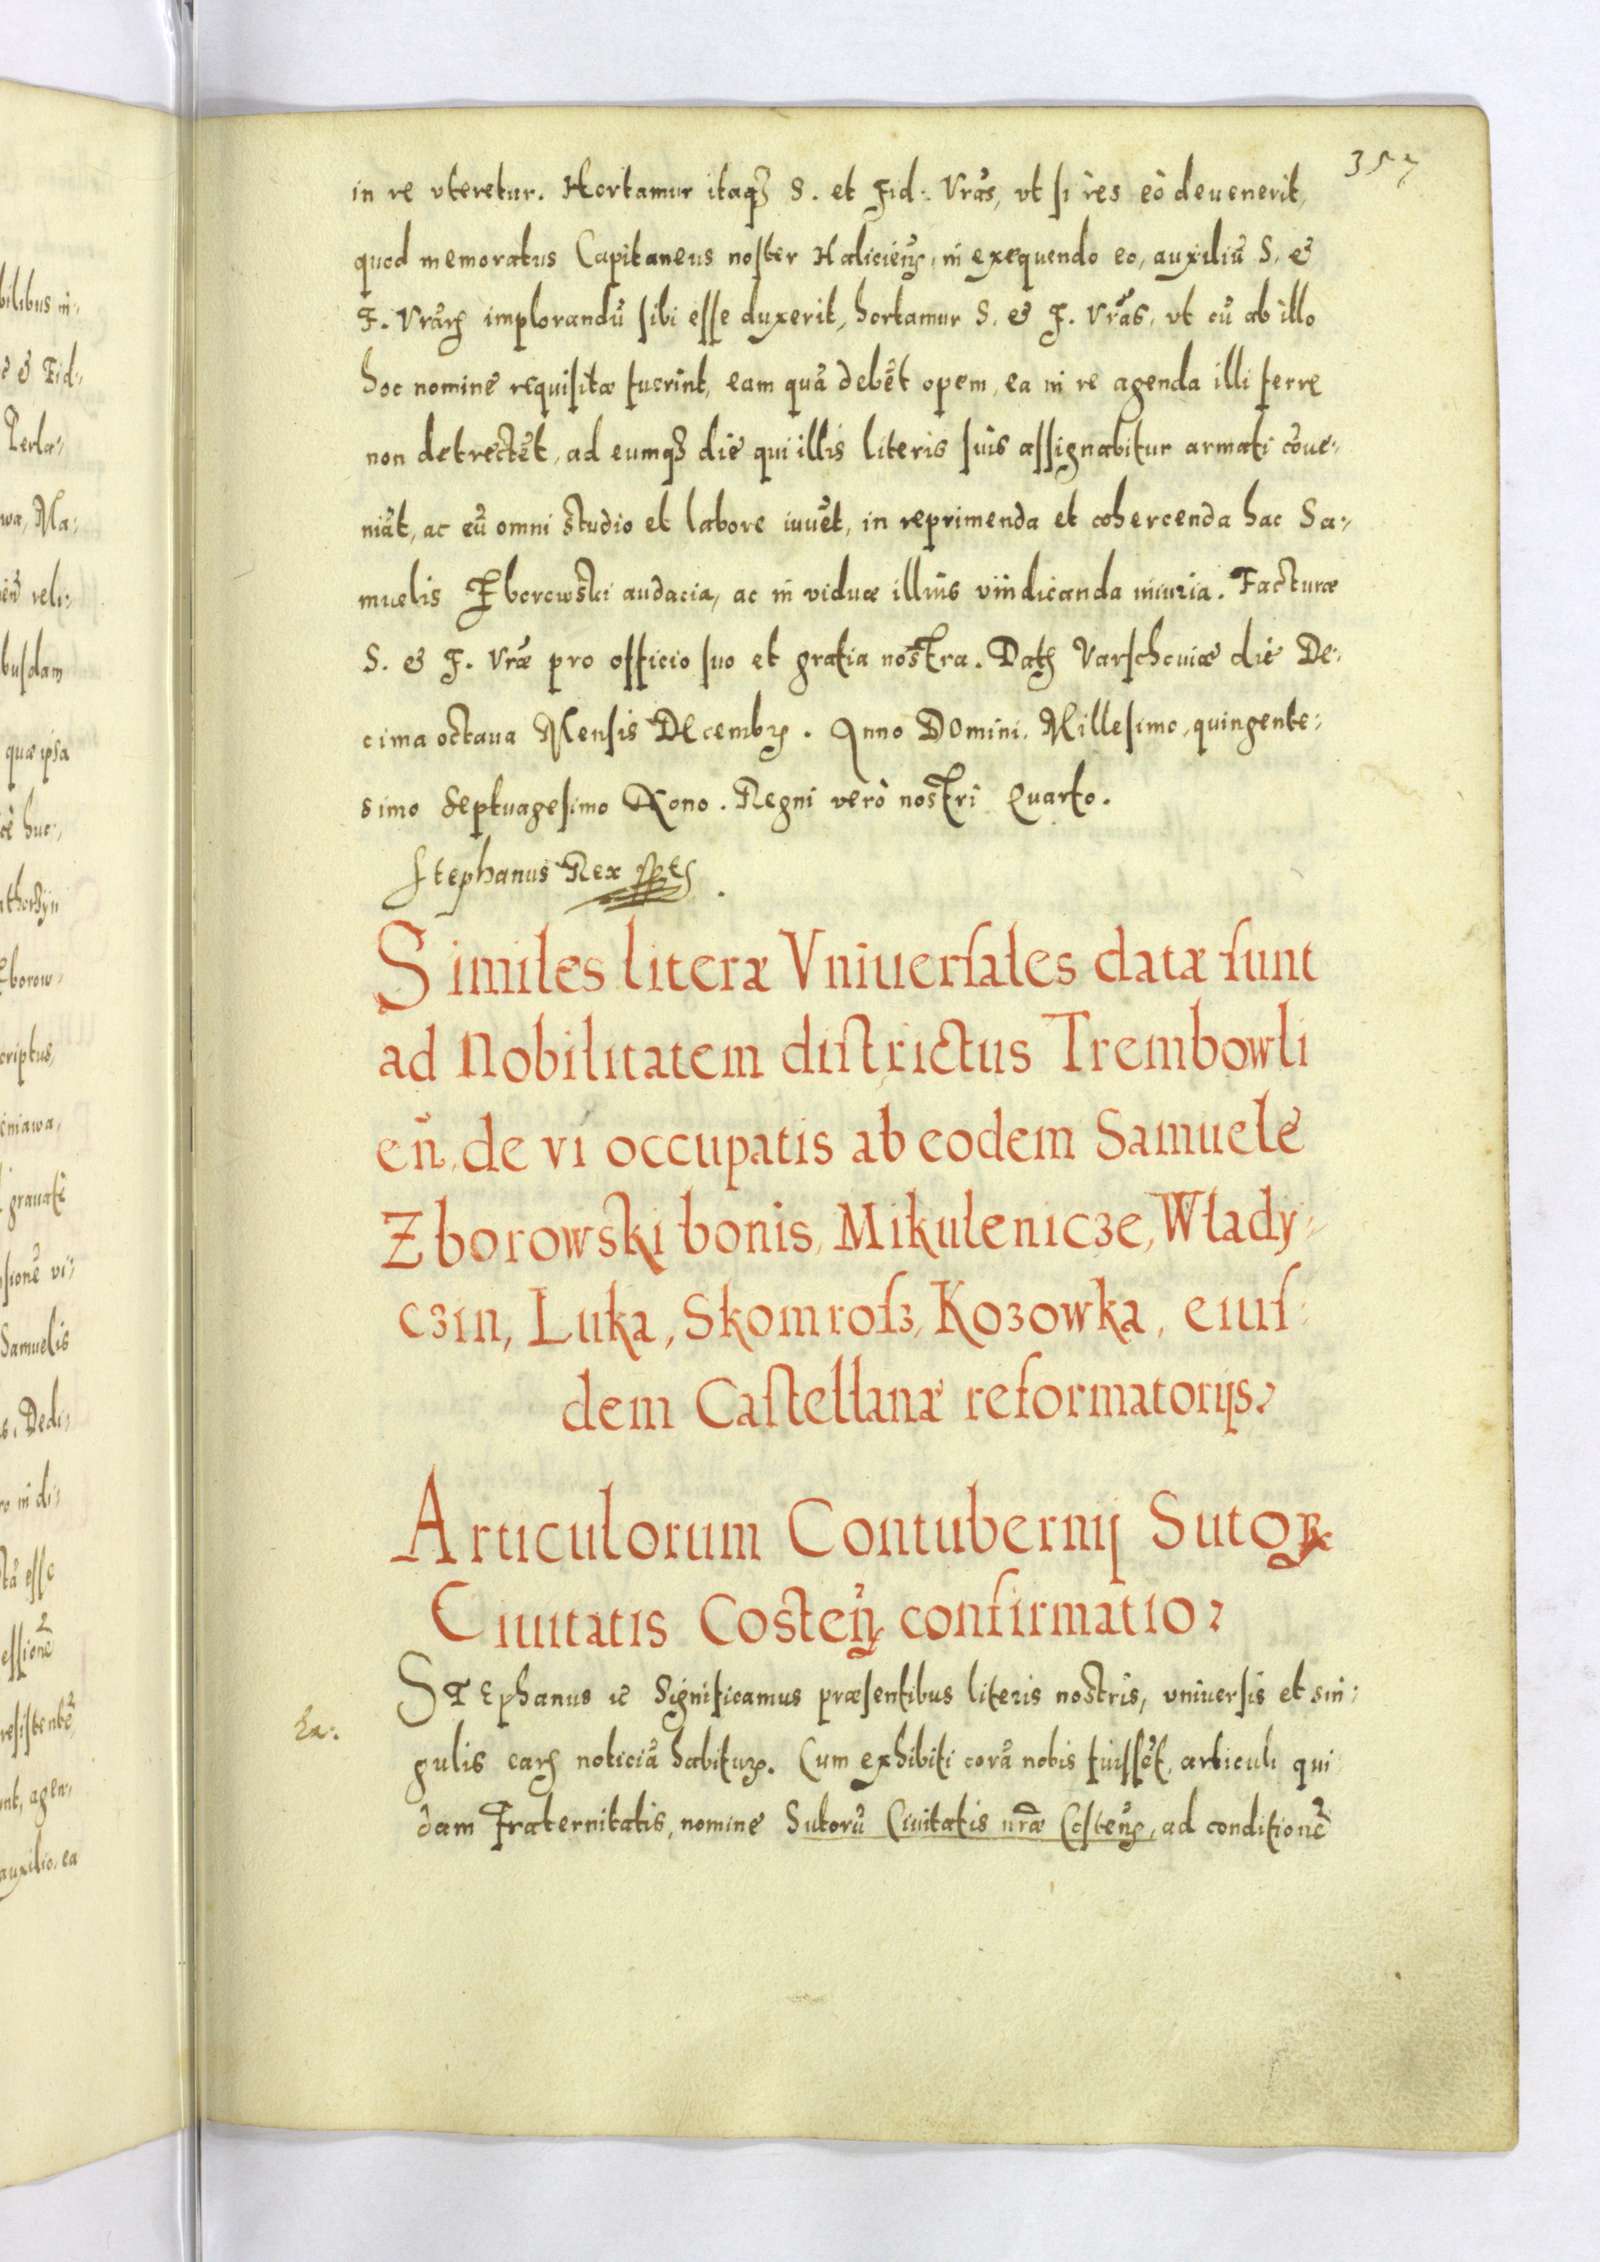 357
in re vteretur. Hortamur itaqȝ S. et Fid: Vrãs, vt si res eò deuenerit,
quod memoratus Capitaneus noster Halicieñ, in exequendo eo, auxiliũ S. &
F. Vrãrȝ implorandũ sibi esse duxerit, hortamur S. & F. Vrãs, vt cũ ab illo
hoc nomine requisitæ fuerint, eam quã debẽt opem, ea in re agenda illi ferre
non detrectẽt, ad eumqȝ diẽ qui illis literis suis assignabitur armati cõue-
niãt, ac eũ omni studio et labore iuuẽt, in reprimenda et cohercenda hac Sa-
muelis Zborowski audacia, ac in viduæ illius vindicanda iniuria. Facturæ
S. & F. Vræ̃ pro officio suo et gratia nostra. Datȝ Varschouiæ die De-
cima octaua Mensis Decembȝ. Anno Domini, Millesimo, quingente-
simo septuagesimo Nono. Regni verò nostri Quarto.
Stephanus Rex sptȝ
Similes literæ Vniuersales datæ sunt
ad Nobilitatem districtus Trembowli
eñ, de vi occupatis ab eodem Samuele
Zborowski bonis, Mikulenicze, Włady-
czin, Luka, Skomrosz, Kozowka, eius-
dem Castellanæ reformatorijs.
Articulorum Contubernij Sutorꝝ
Ciuitatis Costeñ confirmatio.
Stephanus ic Significamus præsentibus literis nostris, vniuersis et sin-
gulis earȝ noticiã habiturȝ. Cum exhibiti corã nobis fuissẽt, articuli qui
dam Fraternitatis, nomine Sutorũ Ciuitatis nræ̃ Costeñ, ad conditionẽ